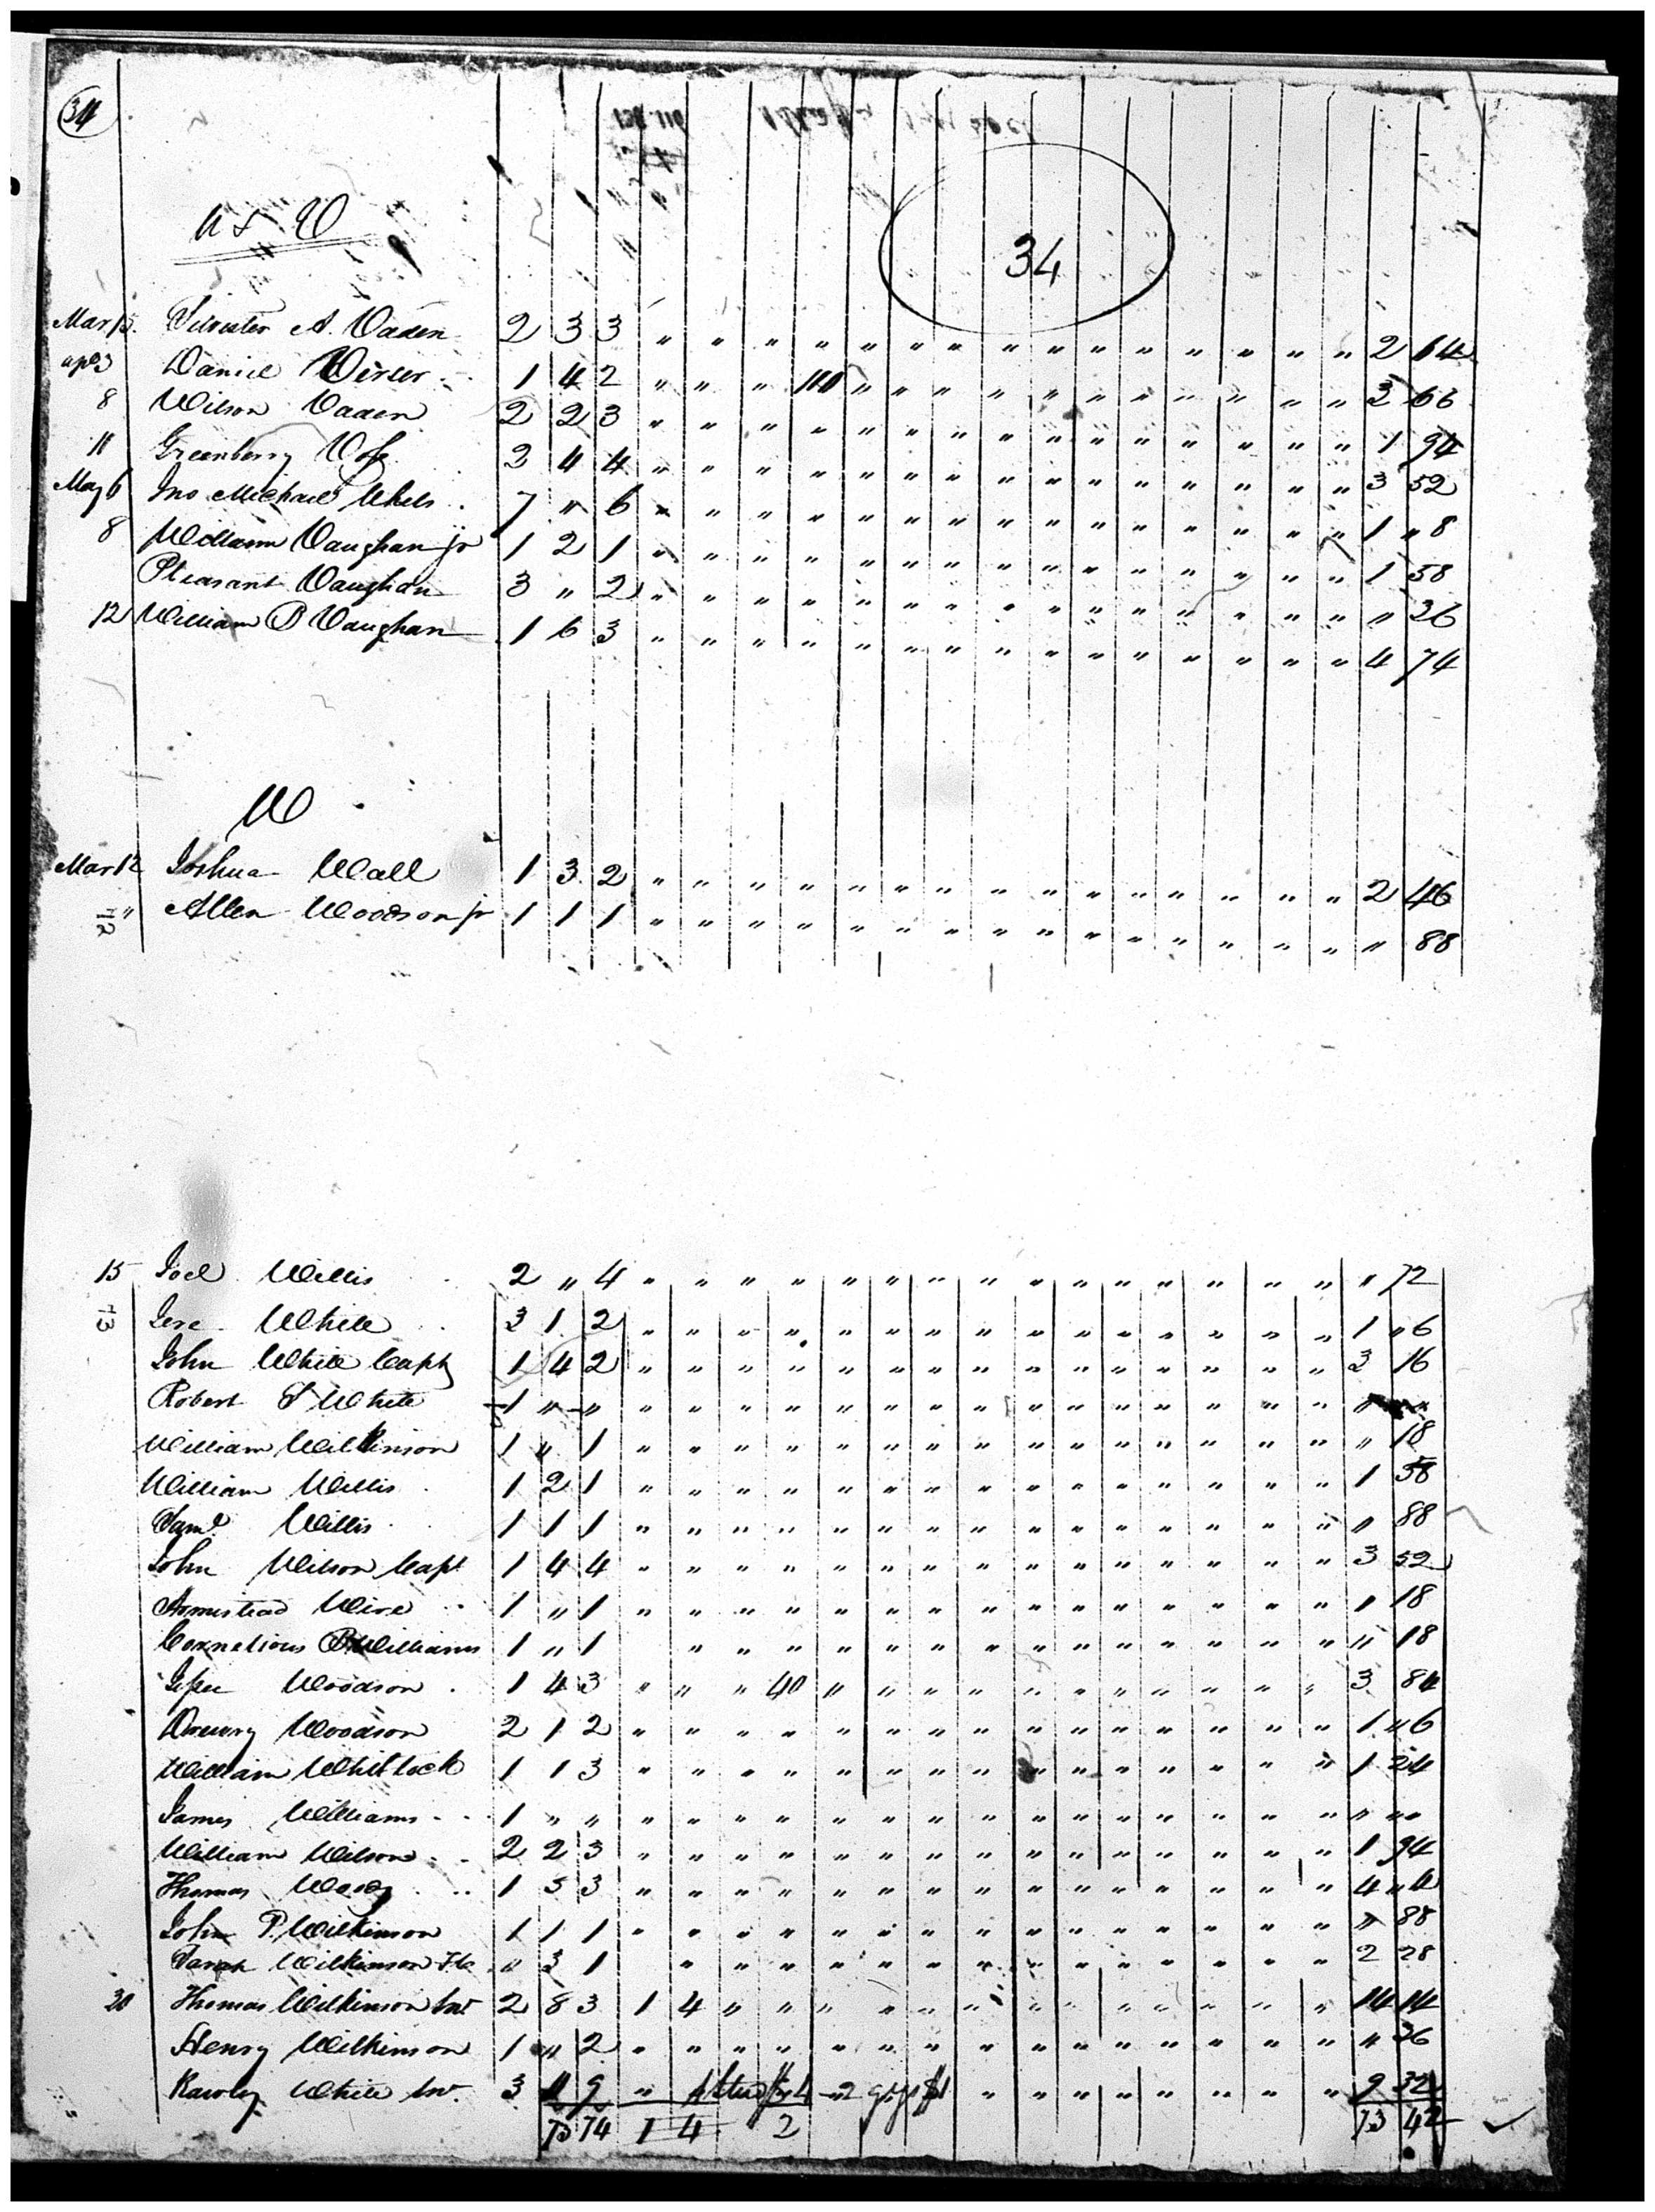 34
U & V
34
Mar 15. A. Vaden 2 3 3 " " " " " " " " " " " " " " " " 2 64
apl 3 Daniel 1 4 2 " " " " " " " " " " " " " " " 3 66
8 Wilson Vaden 2 2 3 " " " " " " " " " " " " " " " " 1 94
11 Greenberry 4 4 " " " " " " " " " " " " " " " " 3 52
May 6 Jno Michael 7 " 6 " " " " " " " " " " " " " " " " 1 " 8
8 William Vaughan jr 1 2 1 " " " " " " " " " " " " " " " " 1 58
Pleasant Vaughan 3 " 2 " " " " " " " " " " " " " " " " " 36
12 William B Vaughan 1 6 3 " " " " " " " " " " " " " " " " 4 74
W
Mar 12 Joshua Wall 1 3 2 " " " " " " " " " " " " " " " " 2 46
" Allen Woodson jr 1 1 1 " " " " " " " " " " " " " " " " " 88
12
15 Joel Willis 2 " 4 " " " " " " " " " " " " " " " " " 72
13 Jere White 3 1 2 " " " " " " " " " " " " " " " " 1 " 6
John White Capt 1 4 2 " " " " " " " " " " " " " " " " 3 16
Robert S White 1 " " " " " " " " " " " " " " " " " " "
William Wilkinson 1 " 1 " " " " " " " " " " " " " " " " " 18
William Willis 1 2 1 " " " " " " " " " " " " " " " " 1 58
Saml Willis 1 1 1 " " " " " " " " " " " " " " " " " 88
John Wilson Capt 1 4 4 " " " " " " " " " " " " " " " " 3 52
Armistead 1 " 1 " " " " " " " " " " " " " " " " " 18
Cornelious Williams 1 " 1 " " " " " " " " " " " " " " " " 18
Jesse Woodson 1 4 3 " " " 40 " " " " " " " " " " " " 3 84
Drewry Woodson 2 1 2 " " " " " " " " " " " " " " " " 1 " 6
William Whitlock 1 1 3 " " " " " " " " " " " " " " " " 1 24
James Williams 1 " " " " " " " " " " " " " " " " " " " " "
William Wilson 2 2 3 " " " " " " " " " " " " " " " " 1 94
Thomas Woody 1 5 3 " " " " " " " " " " " " " " " " 4 " 4
John P. Wilkinson 1 1 1 " " " " " " " " " " " " " " " " " 88
Sarah Wilkinson " 3 1 " " " " " " " " " " " " " " " 2 28
30 Thomas Wilkinson 2 8 3 1 4 " " " " " " " " " " " " " " 14 14
Henry Wilkinson 1 " 2 " " " " " " " " " " " " " " " " " 36
Rawley White 3 11 9 " " " " " " " " " " 9 32
73 74 1 4 2 73 42